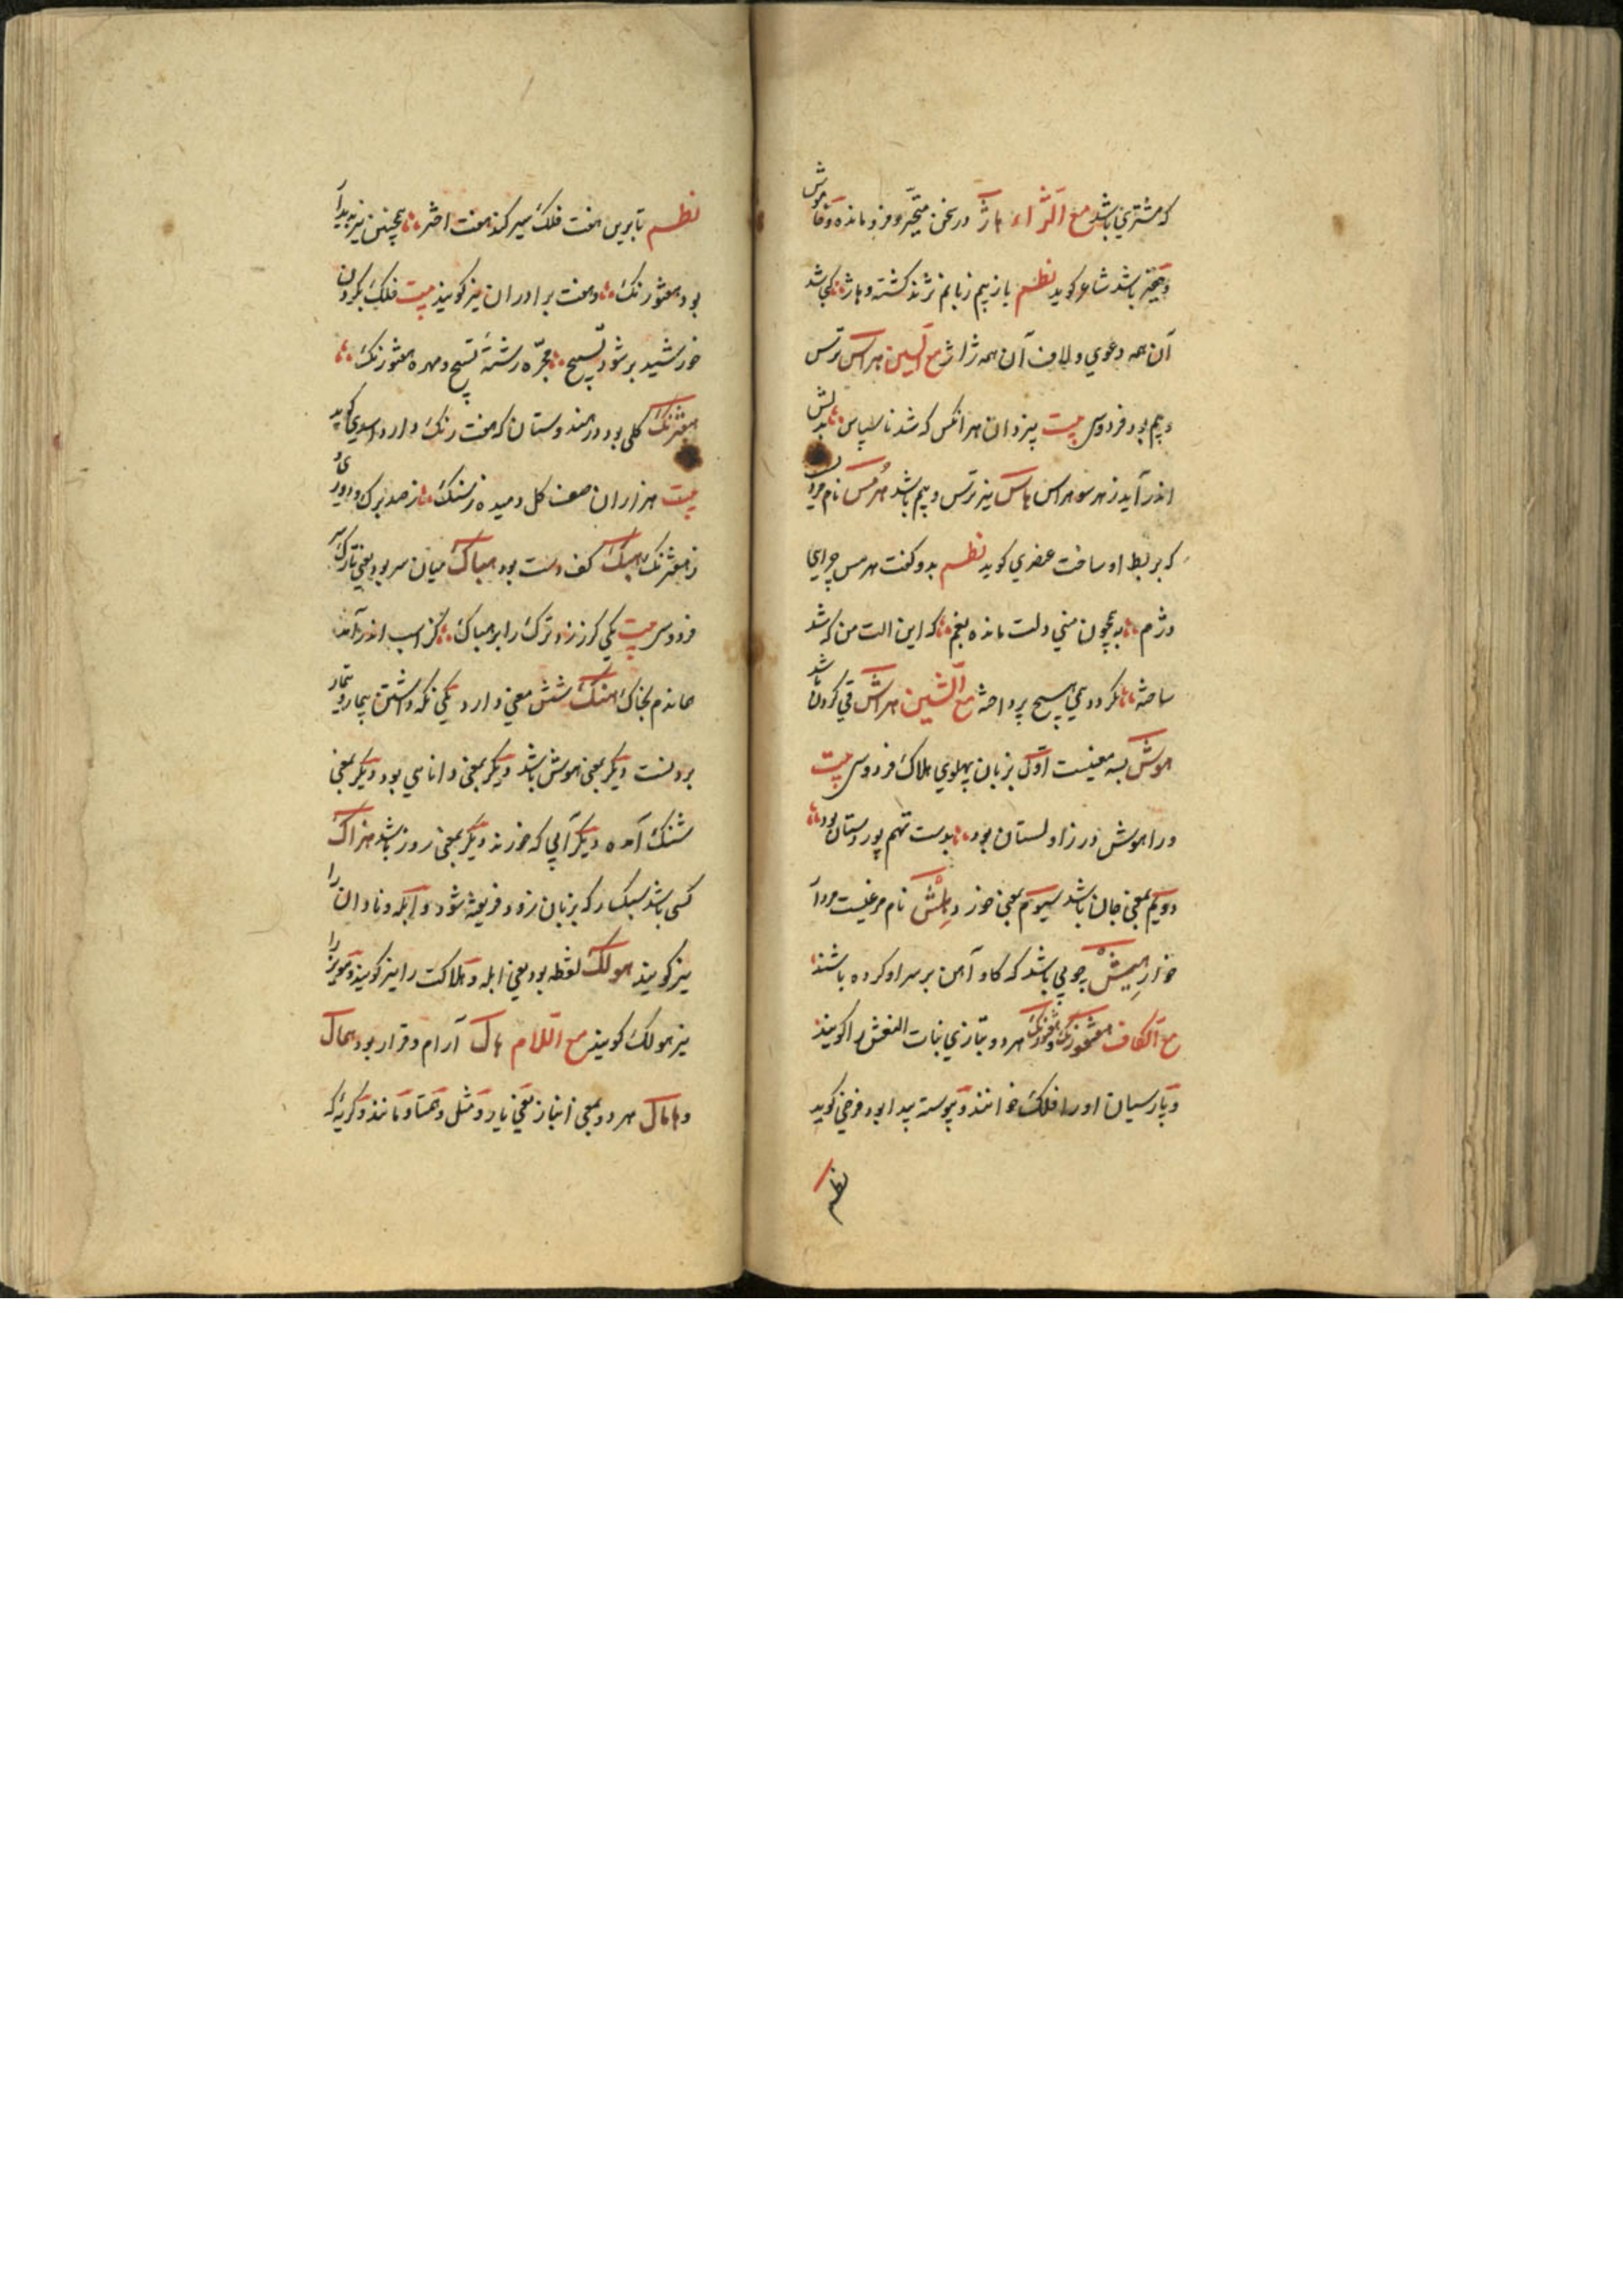 که مشتری باشد مع الژاء هاژ در سخن متحیّر و فرو مانده و خاموش
باشد شاعر گوید نظم یا ز بیم زبانم نژند گشته و هاژ کجا شد
آن همه دعوی و لاف آن همه ژاژ مع السین هراس ترس
و بیم بود فردوسی بیت بیزدان هرانکس که شد ناسپاس بدلش
اندر آید ز هر سو هراس هاس نیز ترس و بیم باشد هرمس نام مردیست
که بربط او ساخت عنصری گوید نظم بدو گفت هرمس چرایی
دژم به همچون منی دلت مانده بغم که این الت من که شد
ساخته نگردد همی هیچ پرداخته مع الشین هراش قی کردن باشد
هوش بسه معنیست اوّل بزبان پهلوی هلاک فردوسی بیت
ورا هوش در زاولستان بود بدست تهم پور دستان بود
دویم بمعنی جان باشد سیوم بمعنی خرد هلش نام مرغیست مردار
خوار هیش چوبی باشد که گاو آهن بر سر او کرده باشند
مع الکاف هفتورنگ و هفورنگ هر دو بتازی بنات النعش را گویند
و پارسیان او را فلک خوانند و پیوسته پیدا بود فرخی گوید
نظم
نظم تا برین هفت فلک سیر کند هفت اختر همچنین نیز پدیدار
بود هفتورنگ و هفت برادران نیز گویند بیت فلک بگردن
خورشید بر شود تسبیح مجرّه رشتهٔ تسبیح و مهره هفتورنگ
هفترنگ گلی بود در هندوستان که هفت رنگ دارد اسدی گوید
بیت هزاران صفت گل دمیده ز سنگ ز صد برگ و دوروی و
ز هفترنگ هبک کف دست بود هباک میان سر بود یعنی تارک سر
فردوسی بیت یکی گرز زد ترک را بر هباک کز اسب اندر آمد
هماندم بخاک هنگ شش معنی دارد یکی نگه داشتن بیمار و تیمار
بردنست دیگر بمعنی هوش باشد دیگر بمعنی دانایی بود دیگر بمعنی
شنک آمده دیگر آبی که خورند دیگر بمعنی روز باشد هزاک
کسی باشد سبکسار که بزبان زود فریفته شود و ابله و نادان را
نیز گویند هولک لفظه بود یعنی ابله و هلاکت را نیز گویند و مویز را
نیز هولک گویند مع اللام هال آرام و قرار بود همال
و هامال هر دو بمعنی انباز یعنی یار و مثل و همتا و مانند و گریه که